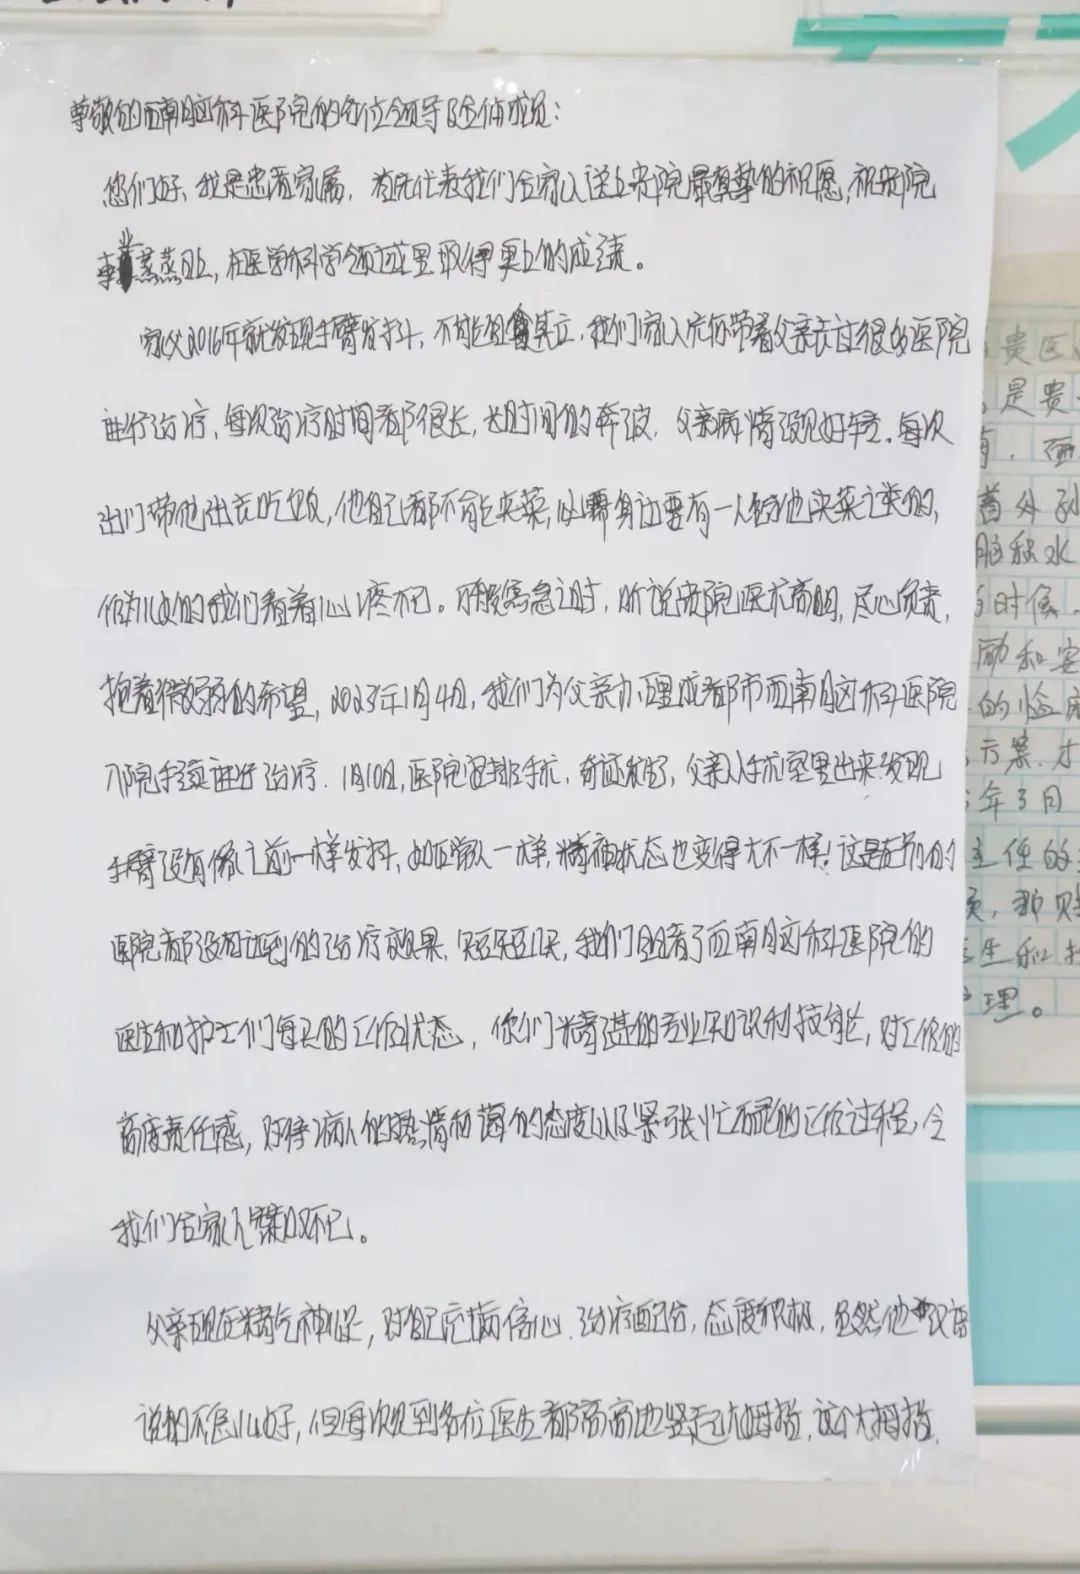 尊敬的西南脑科医院的各位领导及全体成员：
您们好，我是患者家属，首先代表我们全家人送上贵院最真挚的祝愿，祝贵院
蒸蒸日上，在医学科学领域里取得更上的成绩。
家父2016年就发现手臂发抖，不能独自站立，我们家人沉带着父亲去过很多医院
进行治疗，每次治疗时间都很长，长时间的奔波，父亲病情没见好转。每次
出门带他出去吃饭，他自己都不能夹菜，必需身边要有一人给他夹菜之类的，
作为儿女的我们看着心疼不已。万般焦急之时，听说贵院医术高明，尽心负责，
抱着微弱的希望，2023年1月4日，我们为父亲办理成都市西南脑科医院
入院手续进行治疗．1月10日，医院安排手术，奇迹发生了，父亲从手术室里出来发现
手臂没有像之前一样发抖，如正常人一样，精神状态也变得大不一样！这是在别的
医院都没有达到的治疗效果，短短几天，我们目睹了西南脑科医院的
医生和护士们每天的工作状态，你们精湛的专业知识和技能，对工作的
高度责任感，对待病人的热情和蔼的态度以及紧张忙碌的工作过程，令
我们全家人钦佩不已。
父亲现在精气神很足，对自己充满信心．治疗配合，态度积极，虽然他汉语
说的不是很好，但每次见到各位医生都高高地竖起大拇指，这个大拇指，
贵医
是贵
着外孙
脑积水
时候．
励和安
的临床
方案．才
年3月
主任的
生和护
理。